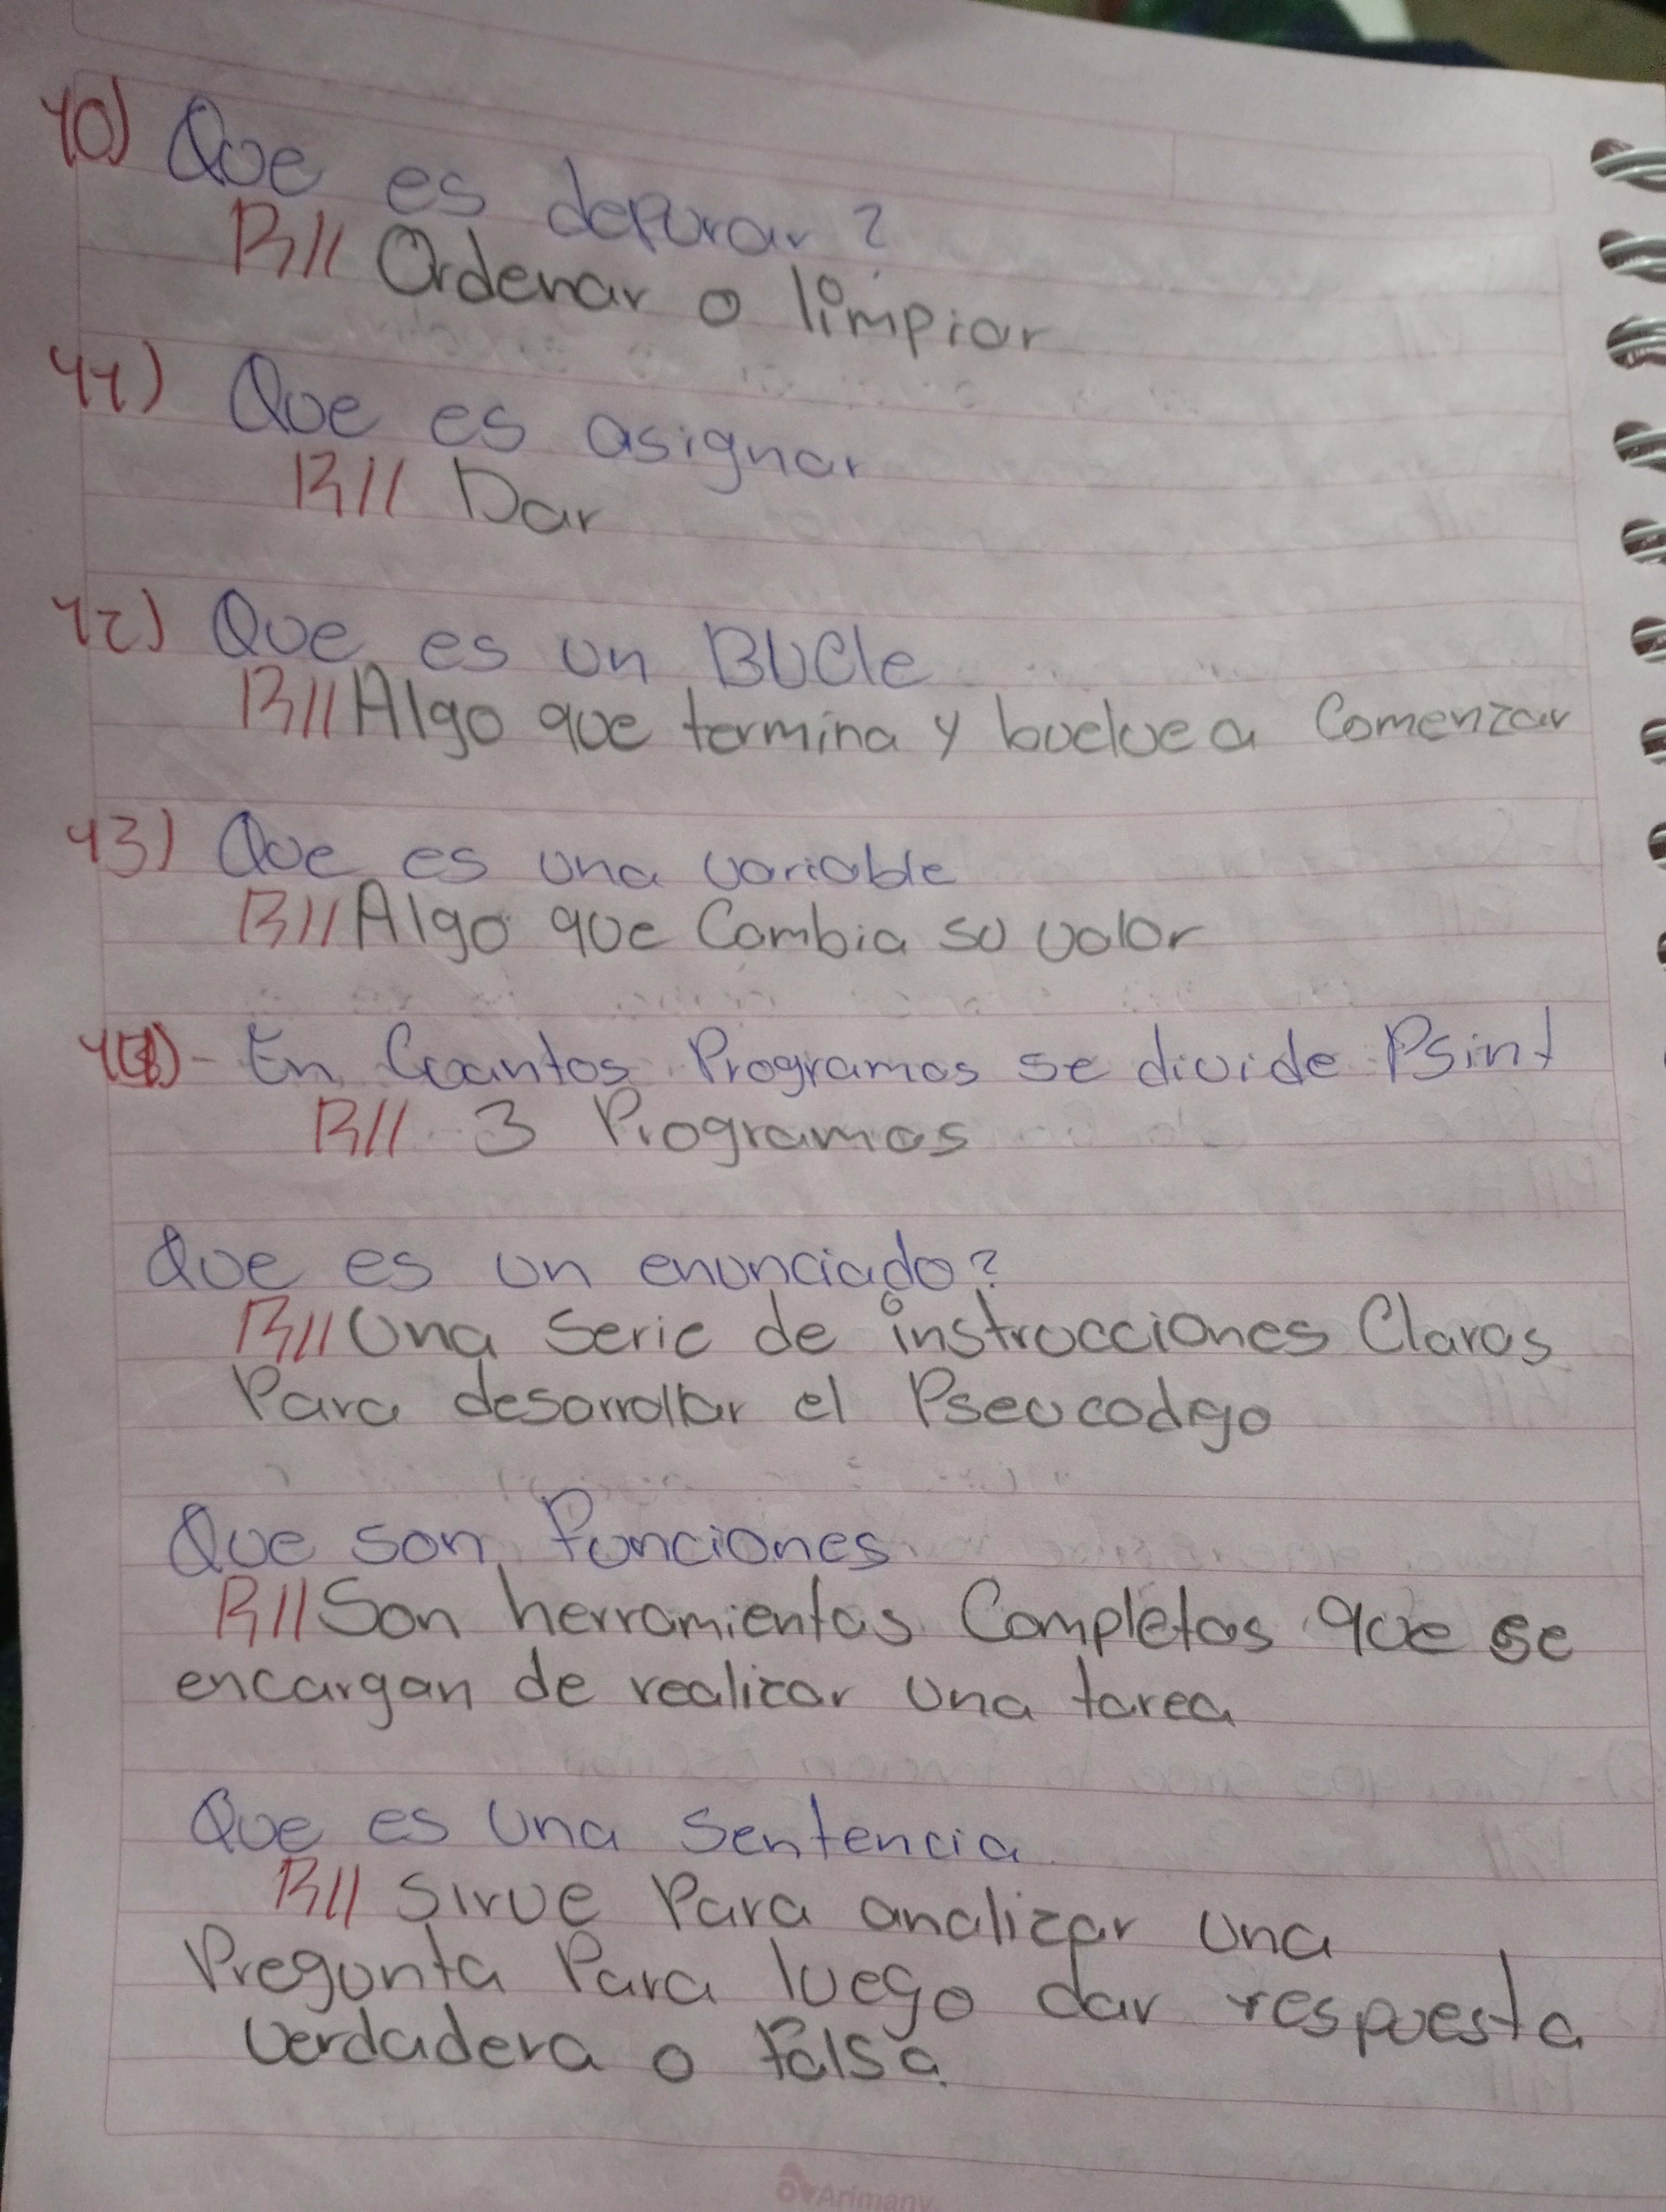 10) Que es depurar?
R// Ordenar o limpiar
11) Que es asignar
R// Dar
12) Que es un BUCle
R// Algo que termina y buelve a Comenzar
13) Que es una variable
R// Algo que Cambia su valor
14)- En Cuantos Programas se divide Psint
R// 3 Programas
Que es un enunciado?
R// Una Serie de instrucciones Claras
Para desarrollar el Pseucodigo
Que son Funciones
R// Son herramientas Completas que se
encargan de realizar una tarea
Que es Una Sentencia
R// Sirve Para analizar una
Pregunta Para luego dar respuesta
Verdadera o Falsa.
Arimany